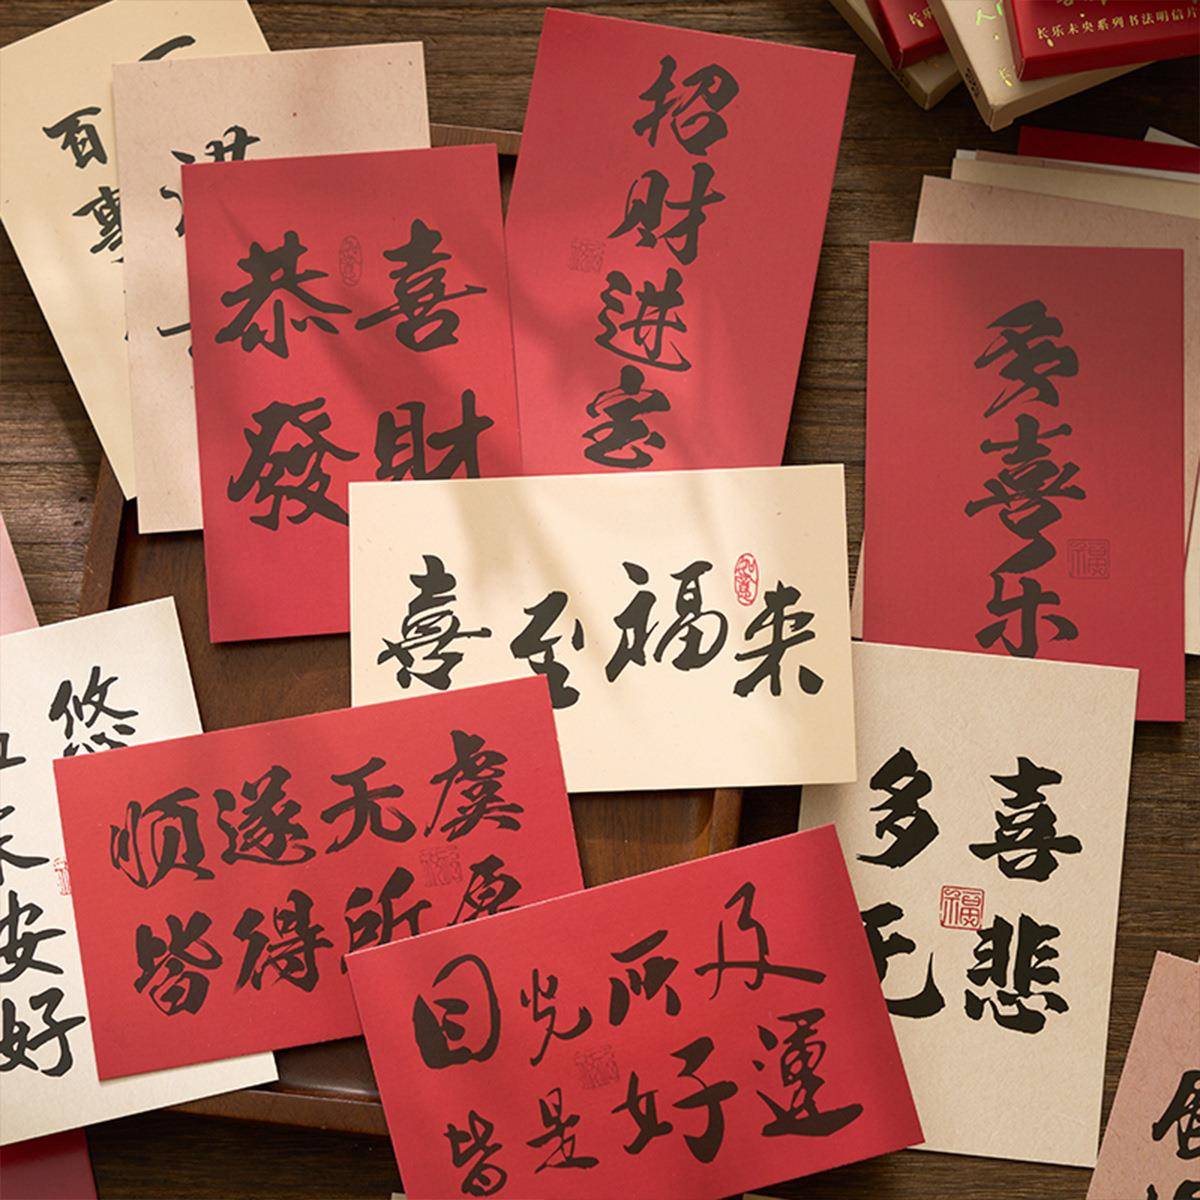 长乐未央系列书法明信片
百事
进
恭喜
發财
如意
招财进宝
多喜乐
福
喜至福来
如意
悠
安好
顺遂无虞
皆得所愿
多喜
无悲
福
目光所及
皆是好運